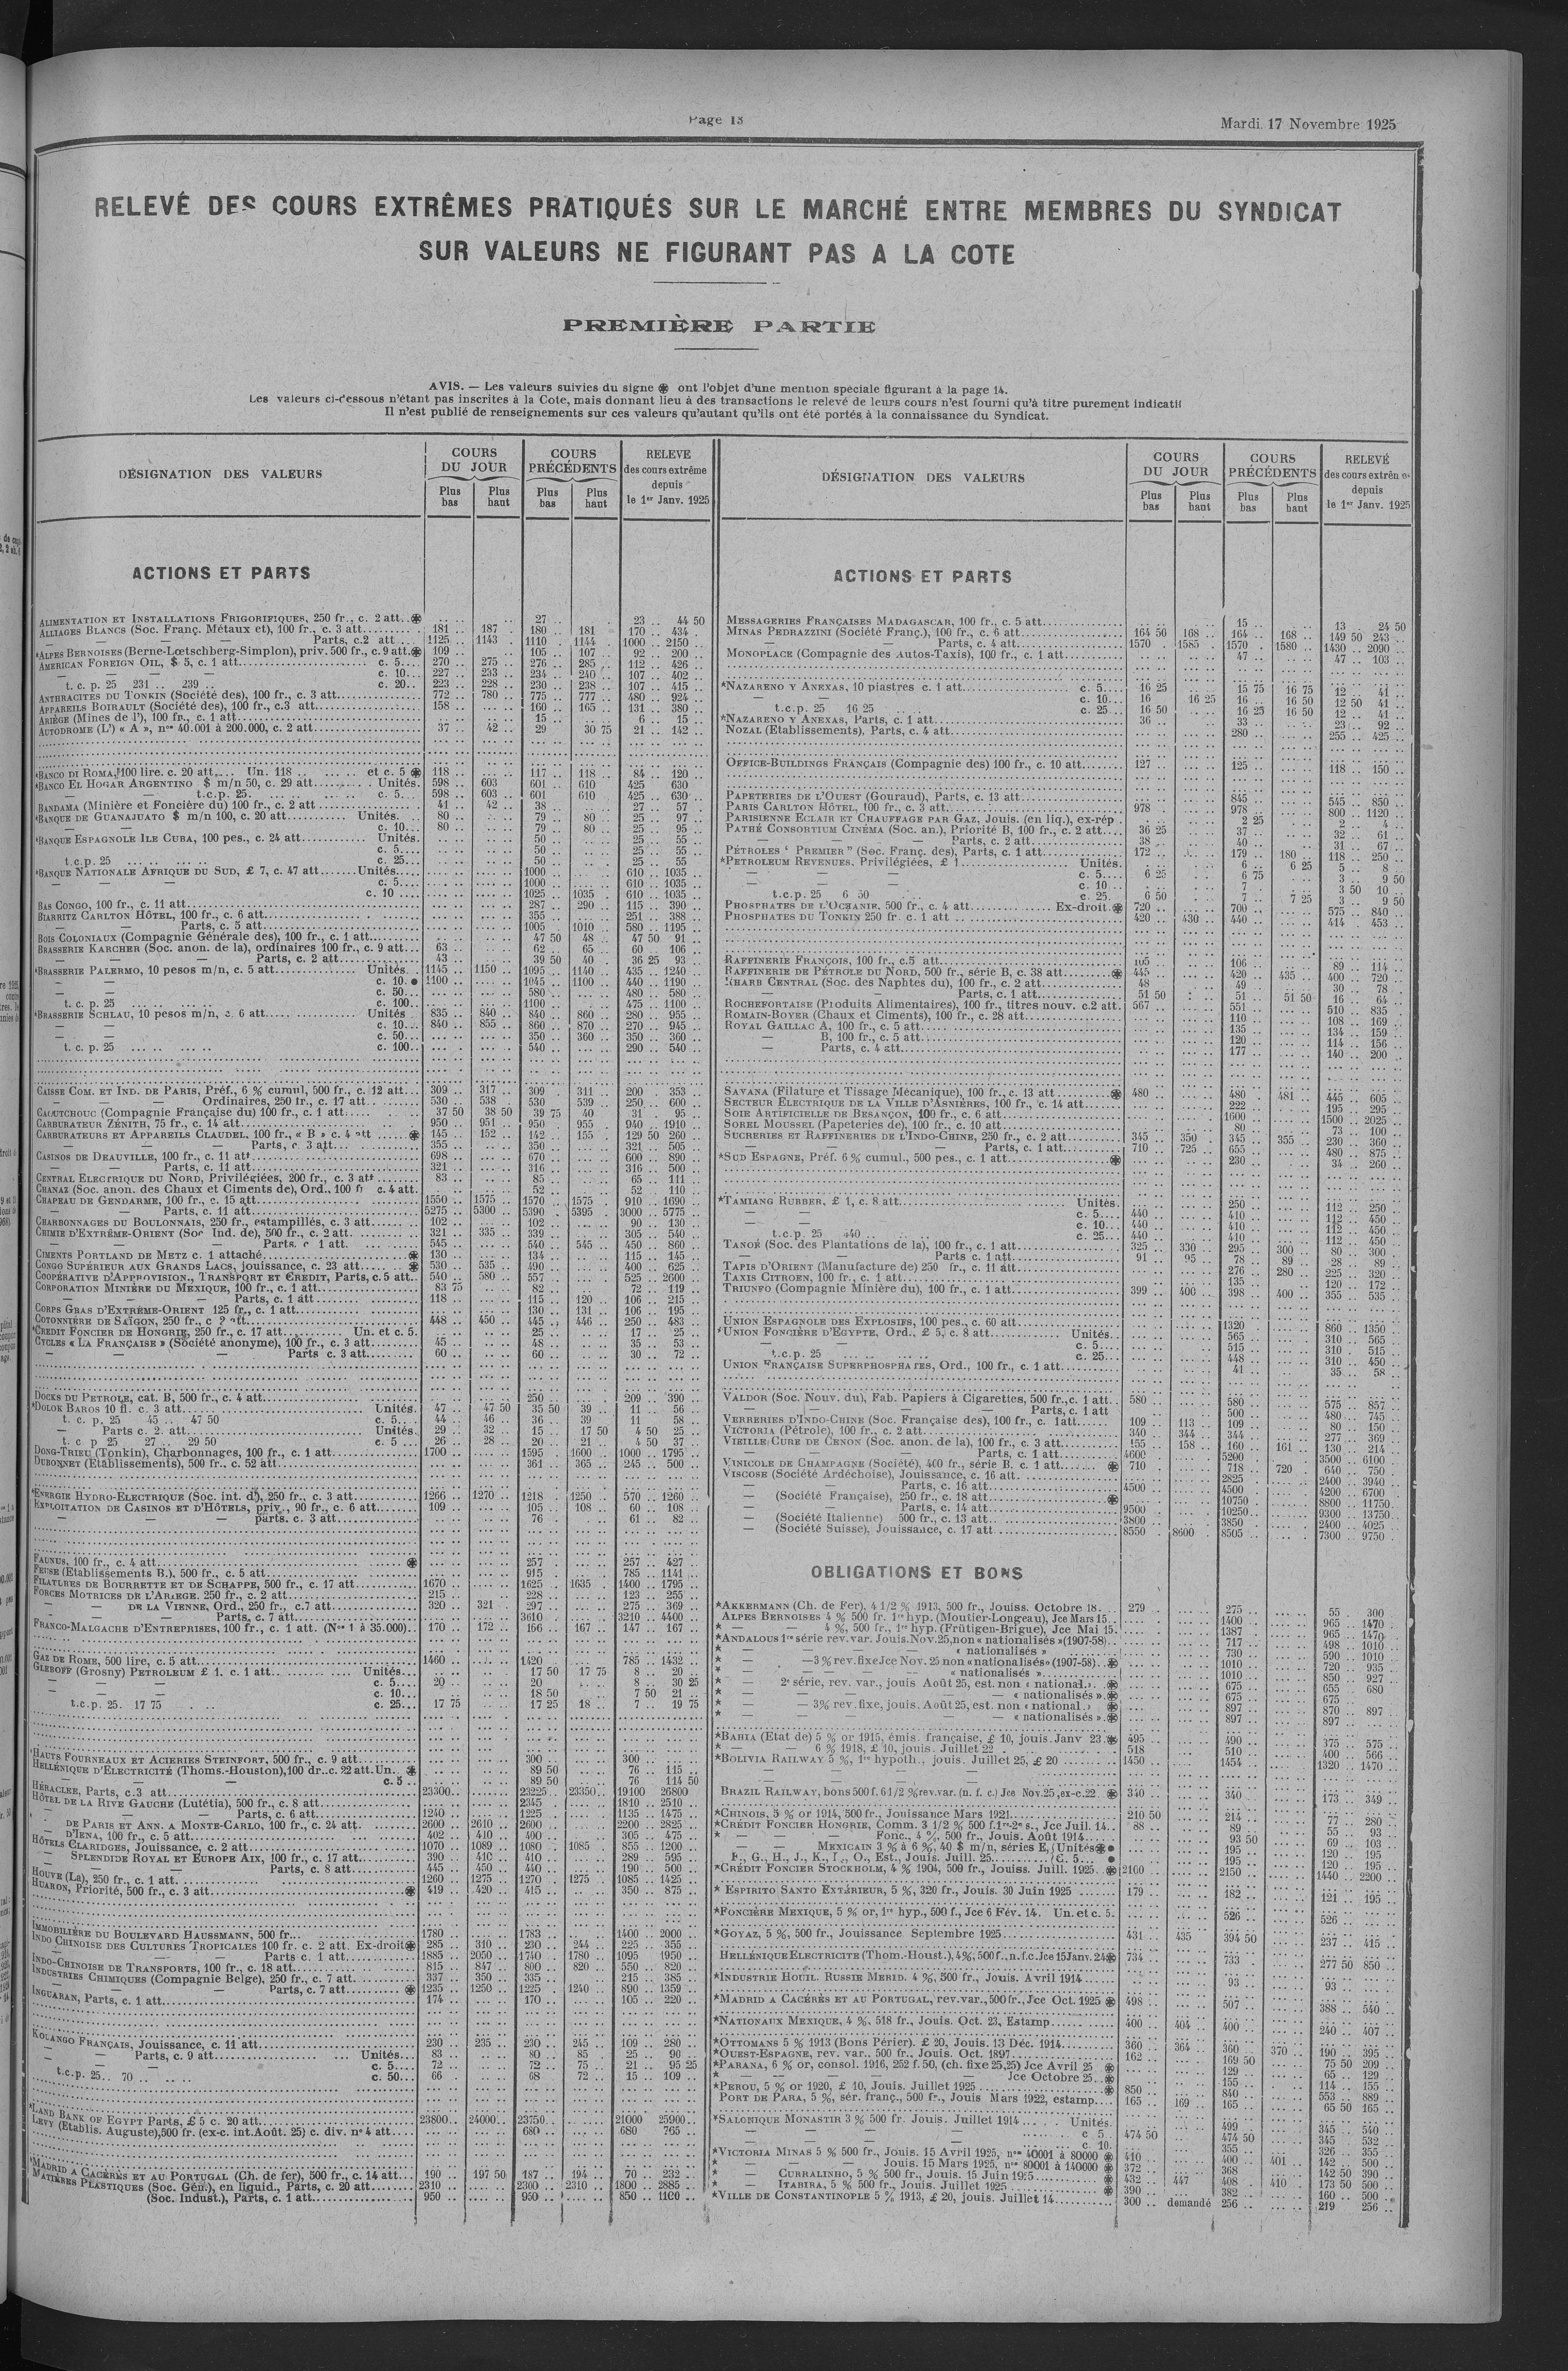 Page 13
Mardi 17 Novembre 1925
RELEVÉ DES COURS EXTRÊMES PRATIQUÉS SUR LE MARCHÉ ENTRE MEMBRES DU SYNDICAT
SUR VALEURS NE FIGURANT PAS A LA COTE
PREMIÈRE PARTIE
AVIS. — Les valeurs suivies du signe ❀ ont l'objet d'une mention spéciale figurant à la page 14.
Les valeurs ci-dessous n'étant pas inscrites à la Cote, mais donnant lieu à des transactions le relevé de leurs cours n'est fourni qu'à titre purement indicatif
Il n'est publié de renseignements sur ces valeurs qu'autant qu'ils ont été portés à la connaissance du Syndicat.
DÉSIGNATION DES VALEURS
COURS DU JOUR
Plus bas
Plus haut
COURS PRÉCÉDENTS
Plus bas
Plus haut
RELEVÉ des cours extrême depuis le 1er Janv. 1925
ACTIONS ET PARTS
ALIMENTATION ET INSTALLATIONS FRIGORIFIQUES, 250 fr., c. 2 att. ❀ .. .. 27 .. 23 .. 44 50
ALLIAGES BLANCS (Soc. Franç. Métaux et), 100 fr., c. 3 att. 181 .. 187 .. 180 .. 181 170 .. 434 .
— — — Parts, c.2 att 1125 .. 1143 .. 1110 .. 1144 .. 1000 .. 2150 ..
*ALPES BERNOISES (Berne-Lœtschberg-Simplon), priv. 500 fr., c. 9 att. ❀ 109 .. 105 .. 107 .. 92 .. 200 ..
AMERICAN FOREIGN OIL, $ 5, c. 1 att. c. 5 270 .. 275 .. 276 .. 285 .. 112 .. 426 ..
— — — c. 10 227 .. 233 .. 234 .. 240 .. 107 .. 402 ..
t. c. p. 25 231 .. 239 .. c. 20 223 .. 228 .. 230 .. 238 .. 107 .. 415 ..
ANTHRACITES DU TONKIN (Société des), 100 fr., c. 3 att. 772 .. 780 .. 775 .. 777 .. 480 .. 924 ..
APPAREILS BOIRAULT (Société des), 100 fr., c.3 att. 158 .. 160 .. 165 .. 131 .. 380 ..
ARIÈGE (Mines de l'), 100 fr., c. 1 att. 15 .. 6 .. 15 ..
AUTODROME (L') « A », nos 40.001 à 200.000, c. 2 att. 37 .. 42 .. 29 30 75 21 .. 142 ..
*BANCO DI ROMA, 100 lire. c. 20 att. Un. 118 et c. 5 ❀ 118 .. 117 .. 118 .. 84 .. 120 ..
*BANCO EL HOGAR ARGENTINO $ m/n 50, c. 29 att. Unités. 598 .. 603 601 .. 610 425 630
— t.c.p. 25. c. 5 598 .. 603 .. 601 610 425 .. 630 ..
BANDAMA (Minière et Foncière du) 100 fr., c. 2 att 41 .. 42 .. 38 .. 27 .. 57 ..
*BANQUE DE GUANAJUATO $ m/n 100, c. 20 att. Unités. 80 .. 79 .. 80 .. 25 .. 97 ..
— — c. 10 80 .. 79 .. 80 .. 25 .. 95 ..
*BANQUE ESPAGNOLE ILE CUBA, 100 pes., c. 24 att. Unités. 50 .. 25 .. 55 ..
c. 5 50 .. 25 .. 55 ..
t.c.p. 25 c. 25 50 .. 25 .. 55
*BANQUE NATIONALE AFRIQUE DU SUD, £ 7, c. 47 att. Unités 1000 .. 610 .. 1035 ..
— — — c. 5 1000 .. 610 .. 1035 ..
c. 10 1025 .. 1035 . 610 .. 1035 ..
BAS CONGO, 100 fr., c. 11 att. 287 .. 290 .. 115 .. 390 ..
BIARRITZ CARLTON HÔTEL, 100 fr., c. 6 att. 355 .. 251 .. 388 ..
— — Parts, c. 5 att. 1005 1010 .. 580 .. 1195 ..
BOIS COLONIAUX (Compagnie Générale des), 100 fr., c. 1 att. 47 50 48 .. 47 50 91 ..
BRASSERIE KARCHER (Soc. anon. de la), ordinaires 100 fr., c. 9 att. 63 .. 62 65 .. 60 .. 106 ..
— — Parts, c. 2 att. 43 .. 39 50 40 .. 36 25 93 ..
*BRASSERIE PALERMO, 10 pesos m/n, c. 5 att. Unités. 1145 .. 1150 .. 1095 .. 1140 .. 435 .. 1240 ..
c. 10. ● 1100 .. 1045 .. 1100 .. 440 .. 1190 ..
c. 50 580 .. 480 .. 580 ..
t. c. p. 25 c. 100 1100 .. 475 .. 1100 ..
*BRASSERIE SCHLAU, 10 pesos m/n, c. 6 att. Unités 835 .. 840 .. 840 .. 860 .. 280 .. 955 ..
c. 10 840 .. 855 .. 860 .. 870 .. 270 .. 945 ..
c. 50 350 .. 360 .. 350 .. 360 ..
t. c. p. 25 c. 100 540 .. 290 .. 540 ..
CAISSE COM. ET IND. DE PARIS, Préf., 6 % cumul, 500 fr., c. 12 att. 309 .. 317 .. 309 311 .. 200 .. 353 ..
Ordinaires, 250 fr., c. 17 att. 530 .. 538 530 .. 539 .. 250 .. 600 ..
CAOUTCHOUC (Compagnie Française du) 100 fr., c. 1 att. 37 50 38 50 39 75 40 31 . 95 ..
CARBURATEUR ZÉNITH, 75 fr., c. 14 att. 950 .. 951 .. 950 .. 955 940 .. 1910 ..
CARBURATEURS ET APPAREILS CLAUDEL, 100 fr., « B » c. 4 att ❀ 145 .. 152 .. 142 .. 155 .. 129 50 260 ..
— — Parts, c. 3 att. 355 .. 350 .. 321 .. 505 ..
CASINOS DE DEAUVILLE, 100 fr., c. 11 att. 698 .. 670 .. 600 .. 890 ..
— — Parts, c. 11 att. 321 .. 316 .. 316 .. 500 ..
CENTRAL ELECTRIQUE DU NORD, Privilégiées, 200 fr., c. 3 att 83 .. 85 .. 65 .. 111 ..
CHANAZ (Soc. anon. des Chaux et Ciments de), Ord., 100 fr c. 4 att. 52 .. 52 .. 110 ..
CHAPEAU DE GENDARME, 100 fr., c. 15 att. 1550 .. 1575 .. 1570 .. 1575 .. 910 .. 1690 ..
— — Parts, c. 11 att. 5275 .. 5300 .. 5390 .. 5395 .. 3000 .. 5775 ..
CHARBONNAGES DU BOULONNAIS, 250 fr., estampillés, c. 3 att. 102 .. 102 .. 90 .. 130 ..
CHIMIE D'EXTRÊME-ORIENT (Soc Ind. de), 500 fr., c. 2 att. 321 .. 335 .. 339 .. 305 .. 540 ..
— — Parts. c 1 att. 545 .. 540 .. 545 .. 450 .. 860 ..
CIMENTS PORTLAND DE METZ c. 1 attaché ❀ 130 .. 134 .. 115 .. 145 ..
CONGO SUPÉRIEUR AUX GRANDS LACS, jouissance, c. 23 att. ❀ 530 .. 535 .. 490 .. 400 .. 625 ..
COOPÉRATIVE D'APPROVISION., TRANSPORT ET CRÉDIT, Parts, c. 5 att. 540 .. 580 .. 557 .. 525 .. 2600 ..
CORPORATION MINIÈRE DU MEXIQUE, 100 fr., c. 1 att. 83 75 82 .. 72 .. 119 ..
— — Parts, c. 1 att 118 .. 115 .. 120 .. 106 .. 215 ..
CORPS GRAS D'EXTRÊME-ORIENT 125 fr., c. 1 att. 130 .. 131 .. 106 .. 195 ..
COTONNIÈRE DE SAÏGON, 250 fr., c ? att. 448 .. 450 .. 445 .. 446 .. 250 .. 483 ..
*CREDIT FONCIER DE HONGRIE, 250 fr., c. 17 att. Un. et c. 5. 25 .. 17 .. 25 ..
CYCLES « LA FRANÇAISE » (Société anonyme), 100 fr., c. 3 att. 45 .. 48 .. 35 .. 53 ..
— — Parts c. 3 att. 60 .. 60 .. 30 .. 72 ..
DOCKS DU PETROLE, cat. B, 500 fr., c. 4 att. 250 .. 209 .. 390 ..
*DOLOK BAROS 10 fl. c. 3 att. Unités. 47 .. 47 50 35 50 39 .. 11 .. 56 ..
t. c. p. 25 45 .. 47 50 c. 5 44 .. 46 .. 36 .. 39 11 .. 58 ..
Parts c. 2. att. Unités. 29 .. 32 .. 15 .. 17 50 4 50 25 ..
t. c. p. 25 27 .. 29 50 c. 5 26 .. 28 .. 20 .. 21 .. 4 50 37 ..
DONG-TRIEU (Tonkin), Charbonnages, 100 fr., c. 1 att. 1700 .. 1595 1600 .. 1000 .. 1795 ..
DUBONNET (Etablissements), 500 fr., c. 52 att. 361 .. 365 .. 245 .. 500 ..
*ENERGIE HYDRO-ELECTRIQUE (Soc. int. d'), 250 fr., c. 3 att. 1266 .. 1270 .. 1218 .. 1250 .. 570 .. 1260 ..
EXPLOITATION DE CASINOS ET D'HÔTELS, priv., 90 fr., c. 6 att. 109 .. 105 .. 108 .. 60 .. 108 ..
— — — parts. c. 3 att. 76 .. 61 .. 82 ..
FAUNUS, 100 fr., c. 4 att. ❀ 257 .. 257 .. 427 ..
FEUSE (Etablissements B.). 500 fr., c. 5 att. 915 .. 785 .. 1141 ..
FILATURES DE BOURRETTE ET DE SCHAPPE, 500 fr., c. 17 att. 1670 .. 1625 .. 1635 .. 1400 .. 1795 ..
FORCES MOTRICES DE L'ARIEGE. 250 fr., c. 2 att. 215 .. 228 .. 123 .. 255 ..
— — DE LA VIENNE, Ord., 250 fr., c.7 att. 320 .. 321 .. 297 .. 275 .. 369 ..
— — Parts, c. 7 att. 3610 .. 3210 .. 4400 ..
FRANCO-MALGACHE D'ENTREPRISES, 100 fr., c. 1 att. (Nos 1 à 35.000) 170 .. 172 .. 166 .. 167 .. 147 .. 167 ..
GAZ DE ROME, 500 lire, c. 5 att. 1460 .. 1420 .. 785 .. 1432 ..
GLEBOFF (Grosny) PETROLEUM £ 1. c. 1 att. Unités 17 50 17 75 8 .. 20 ..
c. 5 20 .. 20 .. 8 .. 30 25
c. 10 18 50 7 50 21 ..
t.c.p. 25. 17 75 c. 25 17 75 17 25 18 .. 7 .. 19 75
*HAUTS FOURNEAUX ET ACIERIES STEINFORT, 500 fr., c. 9 att. 300 .. 300 ..
HELLÉNIQUE D'ELECTRICITÉ (Thoms.-Houston), 100 dr.. c. 22 att. Un. ❀ 89 50 76 .. 115 ..
c. 5 89 50 76 114 50
HÉRACLÉE, Parts, c.3 att 23300 23225 .. 23350 19100 26800
HÔTEL DE LA RIVE GAUCHE (Lutétia), 500 fr., c. 8 att. 2345 1810 .. 2510 ..
— — Parts, c. 6 att. 1240 .. 1225 .. 1135 .. 1475 ..
— DE PARIS ET ANN. A MONTE-CARLO, 100 fr., c. 24 att. 2600 .. 2610 .. 2600 .. 2200 .. 2825 ..
— D'IENA, 100 fr., c. 5 att. 402 .. 410 .. 400 .. 305 .. 475 ..
HÔTELS CLARIDGES, Jouissance, c. 2 att. 1070 .. 1089 .. 1080 .. 1085 .. 855 .. 1200 ..
— SPLENDIDE ROYAL ET EUROPE AIX, 100 fr., c. 17 att. 390 .. 410 .. 410 .. 289 .. 595 ..
— — Parts, c. 8 att. 445 .. 450 .. 440 .. 190 .. 500 ..
HOUVE (La), 250 fr., c. 1 att. 1260 .. 1275 .. 1270 .. 1275 .. 1085 .. 1425 ..
HUARON, Priorité, 500 fr., c. 3 att. ❀ 419 .. 420 .. 415 .. 350 .. 875 ..
IMMOBILIÈRE DU BOULEVARD HAUSSMANN, 500 fr. 1780 1783 .. 1400 .. 2000 ..
INDO CHINOISE DES CULTURES TROPICALES 100 fr. c. 2 att. Ex-droit ❀ 285 .. 310 .. 230 .. 244 .. 225 .. 355 ..
— — Parts c. 1 att. 1885 .. 2050 .. 1740 .. 1780 .. 1095 .. 1950 ..
INDO-CHINOISE DE TRANSPORTS, 100 fr., c. 18 att. 815 .. 847 800 .. 820 .. 550 .. 820 ..
INDUSTRIES CHIMIQUES (Compagnie Belge), 250 fr., c. 7 att. 337 .. 350 .. 335 .. 215 .. 385 ..
— — Parts, c. 7 att. ❀ 1235 .. 1250 .. 1225 .. 1240 .. 890 .. 1359 ..
INGUARAN, Parts, c. 1 att. 174 .. 170 .. 105 .. 220 ..
KOUANGO FRANÇAIS, Jouissance, c. 11 att. 230 .. 235 .. 230 .. 245 .. 109 .. 280 ..
— — Parts, c. 9 att. Unités 83 .. 80 .. 85 25 .. 90 ..
c. 5 72 .. 72 .. 75 .. 21 .. 95 25
t.c.p. 25 .. 70 c. 50 66 .. 68 72 .. 15 .. 109 ..
*LAND BANK OF EGYPT Parts, £ 5 c. 20 att. 23800 .. 24000 .. 23750 .. 21000 25900 ..
LEVY (Etablis. Auguste), 500 fr. (ex-c. int. Août. 25) c. div. no 4 att. 680 .. 680 765 ..
*MADRID A CACÉRÈS ET AU PORTUGAL (Ch. de fer), 500 fr., c. 14 att. 190 .. 197 50 187 .. 194 .. 70 .. 232 ..
MATIÈRES PLASTIQUES (Soc. Gén.), en liquid., Parts, c. 20 att. 2310 .. 2300 .. 2310 .. 1800 .. 2885 ..
(Soc. Indust.), Parts, c. 1 att. 950 .. 950 .. 850 .. 1100 ..
DÉSIGNATION DES VALEURS
COURS DU JOUR
Plus bas
Plus haut
COURS PRÉCÉDENTS
Plus bas
Plus haut
RELEVÉ des cours extrêm depuis le 1er Janv. 1925
ACTIONS ET PARTS
MESSAGERIES FRANÇAISES MADAGASCAR, 100 fr., c. 5 att. 15 .. 13 .. 24 50
MINAS PEDRAZZINI (Société Franç.), 100 fr., c. 6 att. 164 50 168 .. 164 .. 168 .. 149 50 243 ..
— — Parts, c. 4 att. 1570 .. 1585 .. 1570 . 1580 .. 1430 .. 2090 ..
MONOPLACE (Compagnie des Autos-Taxis), 100 fr., c. 1 att. 47 .. 47 .. 103 ..
*NAZARENO Y ANEXAS, 10 piastres c. 1 att. c. 5 16 25 15 75 16 75 12 .. 41 ..
c. 10 16 16 25 16 .. 16 50 12 50 41 ..
t.c.p. 25 16 25 c. 25 16 50 16 25 16 50 12 .. 41 ..
*NAZARENO Y ANEXAS, Parts, c. 1 att. 36 .. 33 .. 23 .. 92 ..
NOZAL (Etablissements), Parts, c. 4 att. 280 .. 255 .. 425 ..
OFFICE-BUILDINGS FRANÇAIS (Compagnie des) 100 fr., c. 10 att. 127 .. 125 .. 118 .. 150 ..
PAPETERIES DE L'OUEST (Gouraud), Parts, c. 13 att. 845 .. 545 .. 850 ..
PARIS CARLTON HÔTEL, 100 fr., c. 3 att. 978 .. 978 .. 800 .. 1120 ..
PARISIENNE ECLAIR ET CHAUFFAGE PAR GAZ, Jouis. (en liq.), ex-rép 2 25 2 .. 4 ..
PATHÉ CONSORTIUM CINÉMA (Soc. an.), Priorité B, 100 fr., c. 2 att. 36 25 37 .. 32 .. 61 ..
— — Parts, c. 2 att. 38 .. 40 .. 31 .. 67 ..
PÉTROLES " PREMIER " (Soc. Franç. des), Parts, c. 1 att. 172 .. 179 .. 180 .. 118 .. 250 ..
*PETROLEUM REVENUES. Privilégiées, £ 1 Unités. 6 .. 6 25 5 .. 8 ..
c. 5 6 25 6 75 3 .. 9 50
c. 10 7 .. 3 50 10 ..
t.c.p. 25 6 50 c. 25 6 50 7 .. 7 25 3 .. 9 50
PHOSPHATES DE L'OCÉANIE, 500 fr., c. 4 att. Ex-droit. ❀ 720 .. 700 .. 575 .. 840 ..
PHOSPHATES DU TONKIN 250 fr. c. 1 att 420 .. 430 .. 440 .. 414 .. 453 ..
RAFFINERIE FRANÇOIS, 100 fr., c.5 att. 105 106 .. 89 .. 114 ..
RAFFINERIE DE PÉTROLE DU NORD, 500 fr., série B, c. 38 att. ❀ 445 .. 420 .. 435 .. 400 .. 720 ..
RHARB CENTRAL (Soc. des Naphtes du), 100 fr., c. 2 att. 48 .. 49 .. 30 .. 78 ..
— — Parts, c. 1 att. 51 50 51 .. 51 50 16 .. 64 ..
ROCHEFORTAISE (Produits Alimentaires), 100 fr., titres nouv. c.2 att. 567 .. 551 .. 510 .. 835 ..
ROMAIN-BOYER (Chaux et Ciments), 100 fr., c. 28 att. 110 .. 108 .. 169 ..
ROYAL GAILLAC A, 100 fr., c. 5 att. 135 .. 134 .. 159 ..
— B, 100 fr., c. 5 att. 120 .. 114 .. 156 ..
— Parts, c. 4 att. 177 .. 140 .. 200 ..
SAVANA (Filature et Tissage Mécanique), 100 fr., c. 13 att ❀ 480 .. 480 .. 481 .. 445 .. 605 ..
SECTEUR ELECTRIQUE DE LA VILLE D'ASNIÈRES, 100 fr., c. 14 att. 222 .. 195 .. 295 ..
SOIE ARTIFICIELLE DE BESANÇON, 100 fr., c. 6 att. 1600 .. 1500 .. 2025 ..
SOREL MOUSSEL (Papeteries de), 100 fr., c. 10 att. 80 .. 73 .. 100 ..
SUCRERIES ET RAFFINERIES DE L'INDO-CHINE, 250 fr., c. 2 att. 345 .. 350 .. 345 .. 355 .. 230 .. 360 ..
— — Parts, c. 1 att. 710 .. 725 .. 655 .. 480 .. 875 ..
*SUD ESPAGNE, Préf. 6 % cumul., 500 pes., c. 1 att. ❀ 230 .. 34 .. 260 ..
*TAMIANG RUBBER, £ 1, c. 8 att. Unités. 250 .. 112 .. 250 ..
c. 5 440 .. 410 .. 112 .. 450 ..
c. 10 440 .. 410 .. 112 .. 450 ..
t.c.p. 25 440 c. 25 440 .. 410 .. 112 .. 450 ..
TANOÉ (Soc. des Plantations de la), 100 fr., c. 1 att. 325 .. 330 .. 295 .. 300 .. 80 .. 300 ..
— — Parts c. 1 att. 91 .. 95 .. 78 .. 89 .. 28 .. 89 ..
TAPIS D'ORIENT (Manufacture de) 250 fr., c. 11 att. 276 280 .. 225 .. 320 ..
TAXIS CITROEN, 100 fr., c. 1 att. 135 .. 120 .. 172 ..
TRIUNFO (Compagnie Minière du), 100 fr., c. 1 att. 399 .. 400 .. 398 .. 400 .. 355 .. 535 ..
UNION ESPAGNOLE DES EXPLOSIFS, 100 pes., c. 60 att. 1320 .. 860 .. 1350 ..
*UNION FONCIÈRE D'EGYPTE, Ord., £ 5, c. 8 att. Unités. 565 .. 310 .. 565 ..
c. 5 515 .. 310 .. 515 ..
t.c.p. 25 c. 25 448 .. 310 .. 450 ..
UNION FRANÇAISE SUPERPHOSPHATES, Ord., 100 fr., c. 1 att. 41 .. 35 .. 58 ..
VALDOR (Soc. Nouv. du), Fab. Papiers à Cigarettes, 500 fr., c. 1 att. 580 .. 580 .. 575 .. 857 ..
— — Parts, c. 1 att 500 .. 480 .. 745 ..
VERRERIES D'INDO-CHINE (Soc. Française des), 100 fr., c. 1att. 109 .. 113 .. 109 .. 80 .. 150 ..
VICTORIA (Pétrole), 100 fr., c. 2 att. 340 .. 344 .. 344 .. 277 .. 369 ..
VIEILLE CURE DE CENON (Soc. anon. de la), 100 fr., c. 3 att. 155 .. 158 .. 160 .. 161 .. 130 .. 214 ..
— — Parts, c. 1 att. 4600 .. 5200 .. 3500 .. 6100 ..
VINICOLE DE CHAMPAGNE (Société), 400 fr., série B, c. 1 att. ❀ 710 .. 718 .. 720 .. 640 .. 750 ..
VISCOSE (Société Ardéchoise), Jouissance, c. 16 att. 2825 .. 2400 .. 3940 ..
— — Parts, c. 16 att. 4500 .. 4500 .. 4200 .. 6700 ..
— (Société Française), 250 fr., c. 18 att. ❀ 10750 .. 8800 .. 11750 ..
— — Parts, c. 14 att. 9500 .. 10250 .. 9300 .. 13750 ..
— (Société Italienne) 500 fr., c. 13 att. 3800 .. 3850 .. 2400 .. 4025 ..
— (Société Suisse), Jouissance, c. 17 att. 8550 .. 8600 .. 8505 .. 7300 .. 9750 ..
OBLIGATIONS ET BONS
*AKKERMANN (Ch. de Fer), 4 1/2 % 1913, 500 fr., Jouiss. Octobre 18. 279 .. 275 .. 55 .. 300
ALPES BERNOISES 4 % 500 fr. 1re hyp. (Moutier-Longeau), Jce Mars 15 1400 .. 965 .. 1470 ..
*— — 4 %, 500 fr., 1re hyp. (Frütigen-Brigue), Jce Mai 15. 1387 965 .. 1470 ..
*ANDALOUS 1re série rev. var. Jouis. Nov. 25, non « nationalisés » (1907-58) 717 .. 498 .. 1010 ..
*— — « nationalisés » 730 .. 590 .. 1010 ..
*— —3 % rev. fixe Jce Nov. 25 non « nationalisés » (1907-58) ❀ 1010 .. 720 .. 935 ..
*— — « nationalisés » 1010 .. 850 .. 927 ..
*— 2e série, rev. var., jouis Août 25, est. non « national. ». ❀ 675 .. 655 680
*— — « nationalisés » ❀ 675 .. 675 ..
*— — 3% rev. fixe, jouis. Août 25, est. non « national. » ❀ 897 .. 870 .. 897 ..
*— — « nationalisés ». ❀ 897 .. 897 ..
*BAHIA (Etat de) 5 % or 1915, émis. française, £ 10, jouis. Janv 23. ❀ 495 .. 490 .. 375 .. 575 ..
*— — 6 % 1918, £ 10, jouis. Juillet 22 518 510 .. 400 .. 566 ..
*BOLIVIA RAILWAY 5 %, 1re hypoth., jouis. Juillet 25, £ 20 1450 .. 1454 .. 1320 .. 1470 ..
BRAZIL RAILWAY, bons 500 f. 6 1/2 % rev. var. (n. f. c.) Jce Nov. 25, ex-c.22 ❀ 340 .. 340 .. 173 .. 349 ..
*CHINOIS, 5 % or 1914, 500 fr., Jouissance Mars 1921. 210 50 214 .. 77 .. 280 ..
*CRÉDIT FONCIER HONGRIE, Comm. 3 1/2 % 500 f. 1re-2e s., Jce Juil. 14 88 .. 89 .. 55 .. 93 ..
*— — Fonc., 4 %, 500 fr., Jouis. Août 1914 93 50 69 .. 103 ..
— — MEXICAIN 3 % à 6 %, 40 $ m/n, séries E, (Unités ❀ ● 195 .. 120 .. 195 ..
F., G., H., J., K., L., O., Est., Jouis. Juill. 25. (C. 5 ● 195 .. 120 .. 195 ..
*CRÉDIT FONCIER STOCKHOLM, 4 % 1904, 500 fr., Jouiss. Juill. 1925. ❀ 2160 .. 2150 .. 1440 .. 2200 ..
*ESPIRITO SANTO EXTÉRIEUR, 5 %, 320 fr., Jouis. 30 Juin 1925 179 .. 182 .. 121 .. 195 ..
*FONCIÈRE MEXIQUE, 5 % or, 1re hyp., 500 f., Jce 6 Fév. 14. Un. et c. 5. 526 .. 526 ..
*GOYAZ, 5 %, 500 fr., Jouissance Septembre 1925. 431 .. 435 394 50 237 .. 415 ..
HELLÉNIQUE ELECTRICITE (Thom.-Houst.), 4%, 500 f., n.f.c. Jce 15 Janv. 24 ❀ 734 .. 733 .. 277 50 850 ..
*INDUSTRIE HOUIL. RUSSIE MERID. 4 %, 500 fr., Jouis. Avril 1914 93 .. 93 ..
*MADRID A CACÉRÈS ET AU PORTUGAL, rev. var., 500 fr., Jce Oct. 1925 ❀ 498 .. 507 .. 388 .. 540 ..
*NATIONAUX MEXIQUE, 4 %, 518 fr., Jouis. Oct. 23, Estamp. 400 .. 404 .. 400 .. 240 .. 407 ..
*OTTOMANS 5 % 1913 (Bons Périer). £ 20, Jouis. 13 Déc. 1914 360 .. 364 .. 360 .. 370 .. 190 .. 395 ..
*OUEST-ESPAGNE, rev. var.. 500 fr., Jouis. Oct. 1897 162 .. 169 50 75 50 209 ..
*PARANA, 6 % or, consol. 1916, 252 f. 50, (ch. fixe 25,25) Jce Avril 25 ❀ 129 .. 65 .. 129 ..
*— — Jce Octobre 25. ❀ 155 .. 114 .. 155 ..
*PEROU, 5 % or 1920, £ 10, Jouis. Juillet 1925 ❀ 850 .. 840 .. 553 .. 889 ..
PORT DE PARA, 5 %, sér. franç., 500 fr., Jouis Mars 1922, estamp. 165 169 .. 165 .. 65 50 165 ..
*SALONIQUE MONASTIR 3 % 500 fr. Jouis. Juillet 1914 Unités. 499 .. 345 .. 540 ..
c 5 474 50 474 50 345 .. 532 ..
c. 10. 355 .. 326 .. 355 ..
*VICTORIA MINAS 5 % 500 fr., Jouis. 15 Avril 1925, nos 40001 à 80000 ❀ 410 .. 400 .. 401 .. 142 .. 500 ..
*— — Jouis. 15 Mars 1925, nos 80001 à 140000 ❀ 372 .. 368 142 50 390 ..
*— CURRALINHO, 5 % 500 fr., Jouis. 15 Juin 1925 ❀ 432 .. 447 408 .. 410 .. 173 50 500 ..
*— ITABIRA, 5 % 500 fr., Jouis. Juillet 1925 ❀ 390 .. 382 .. 160 .. 500 ..
*VILLE DE CONSTANTINOPLE 5 % 1913, £ 20, jouis. Juillet 14 300 .. demandé 256 .. 219 256 ..